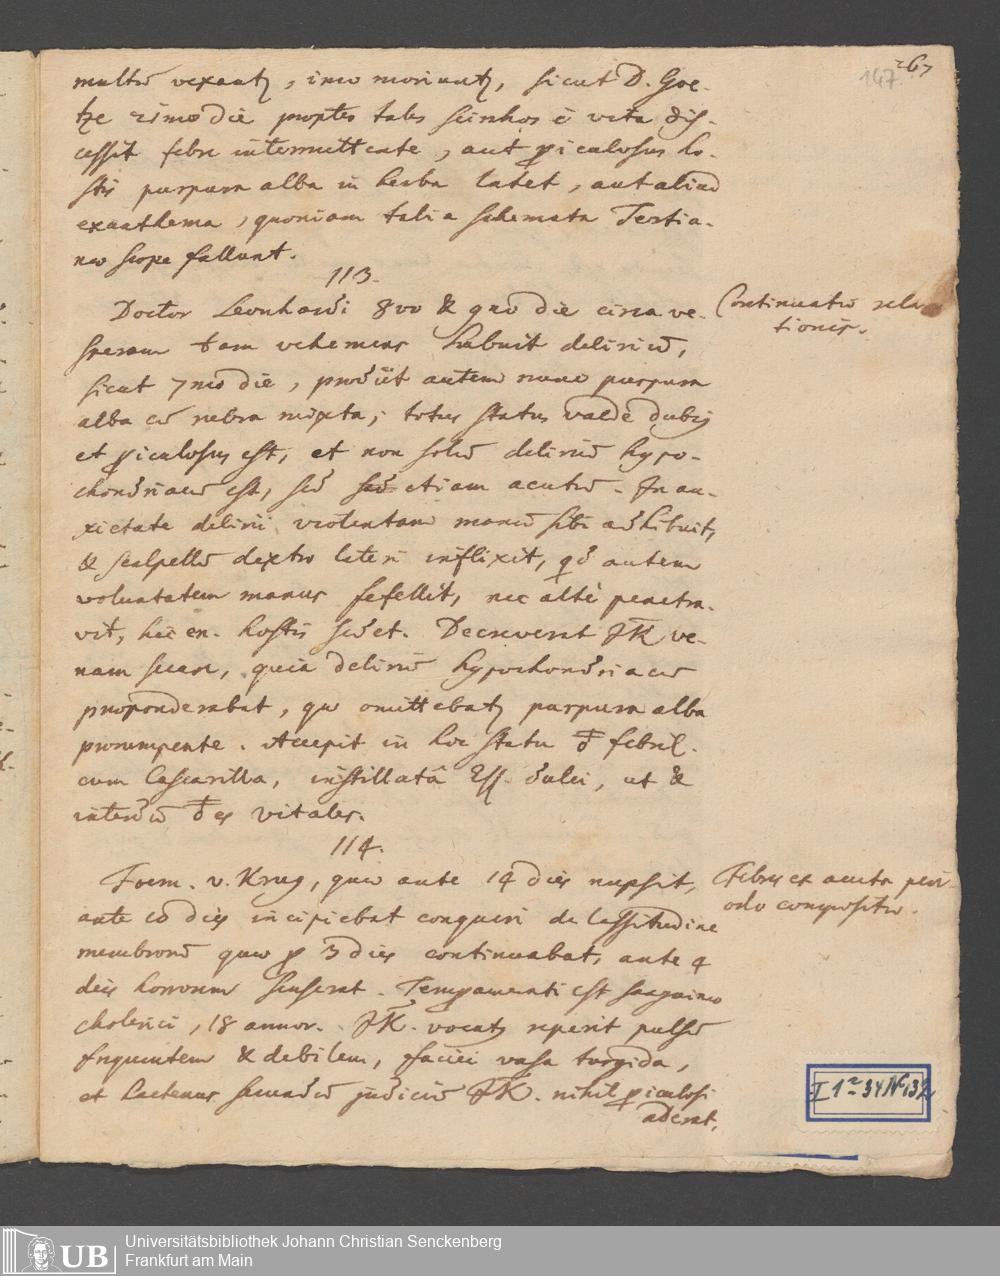 267
147
multū vexantʒ, imo moriuntʒ, sicut D. Goe-
tze 21mo die propter tales scirrhos è vita dis-
cessit febre intermittente, aut piculosus ho-
stis purpura alba in herba latet, aut aliud
exanthema, quoniam talia schemata Tertia-
næ sæpe fallunt.
113.
Continuatio rela-
tionis.
Doctor Leonhardi 8vo & 9no die circa ve-
speram tam vehemens habuit deliriū,
sicut 7mo die, prodiit autem nunc purpura
alba cū rubra mixta, totus status valde dubiꝫ
et piculosus est, et non solū deliriū hypo-
chondriacū est, sed sed etiam acutū. In an-
xietate delirii violentam manū sibi adhibuit,
& scalpellū dextro lateri inflixit, qd autem
voluntatem manus fefellit, nec altè penetra-
vit, hic en. hostis Decreverat JK ve-
nam secare, quia deliriū hypochondriacū
præponderabat, quæ omittebatʒ purpura alba
prorumpente. Accepit in hoc statu febril.
cum Cascarilla, instillatâ Ess. dulci, ut &
interdiū es vitales.
114.
Febris ex acuta peri-
odo composita.
Foem. v. Krug, quæ ante 14 dies nupsit,
ante 10 dies incipiebat conqueri de lassitudine
membrorū quæ p 3 dies continuabat, ante 4
dies horrorem senserat. Temperamenti est sanguineo
cholerici, 18 annor. JK. vocatꝫ reperit pulsū
frequentem & debilem, faciei vasa turgida,
et hactenus secundū judiciū JK. nihil piculosi
aderat,
I 1 34 No 132
UB
Universitätsbibliothek Johann Christian Senckenberg
Frankfurt am Main